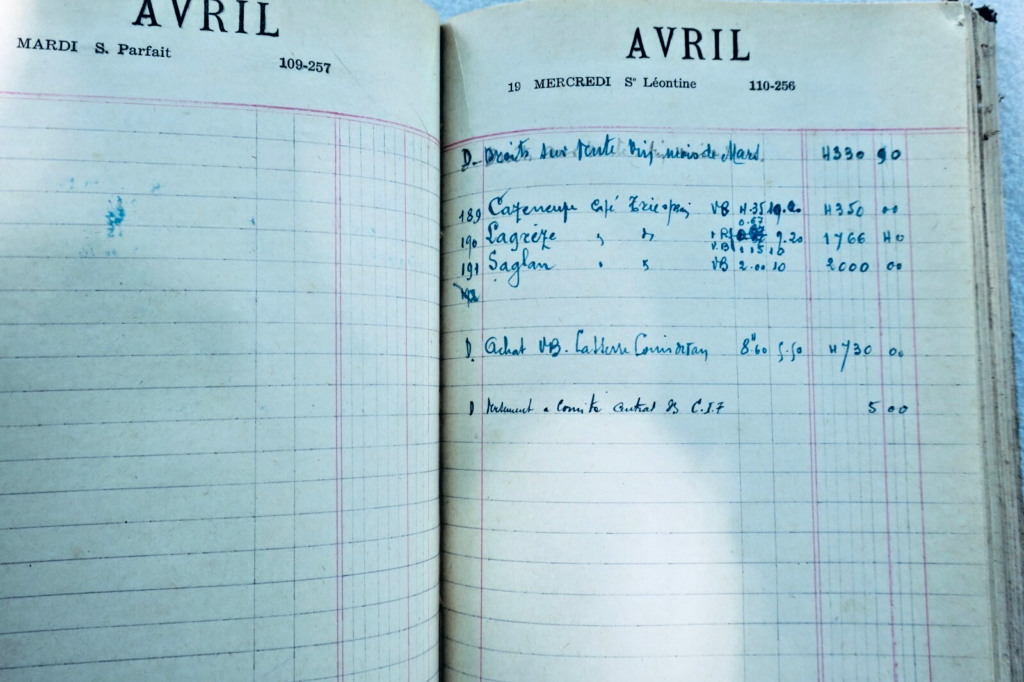 AVRIL
MARDI S. Parfait
109-257
AVRIL
19 MERCREDI Sᵉ Léontine 110-256
D. Droits sur Vente mois de Mars. 4330 90
189 Cazeneuve Café VB 4.35 19.20 4350 00
0.67
190 Lagrèze " " 9.20 1766 40
V.B 1.15 10
191 Saglan " " VB 2.00 10 2000 00
192
D. Achat VB. 8ᴴ60 5.50 4730 00
D Versement a Comité central C.I.7 5 00